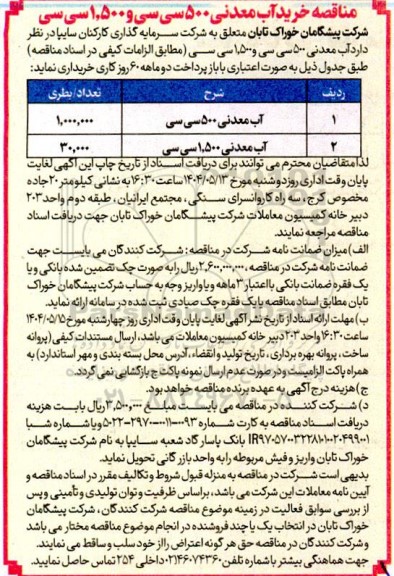 مناقصه خرید آب معدنی ۵۰۰ سی سی و ۱,۵۰۰ سی سی
شرکت پیشگامان خوراک تابان متعلق به شرکت سرمایه گذاری کارکنان سایپا در نظر
دارد آب معدنی ۵۰۰ سی سی و ۱,۵۰۰ سی سی (مطابق الزامات کیفی در اسناد مناقصه)
طبق جدول ذیل به صورت اعتباری با باز پرداخت دو ماهه ۶۰ روز کاری خریداری نماید:
ردیف شرح تعداد/بطری
۱ آب معدنی ۵۰۰ سی سی ۱,۰۰۰,۰۰۰
۲ آب معدنی ۱,۵۰۰ سی سی ۳۰,۰۰۰
لذا متقاضیان محترم می توانند برای دریافت اسناد از تاریخ چاپ این آگهی لغایت
پایان وقت اداری روز دوشنبه مورخ ۱۴۰۴/۰۵/۱۳ ساعت ۱۶:۳۰ به نشانی کیلومتر ۲۰ جاده
مخصوص کرج، سه راه کاروانسرای سنگی، مجتمع ایرانیان، طبقه دوم واحد ۲۰۳
دبیر خانه کمیسیون معاملات شرکت پیشگامان خوراک تابان جهت دریافت اسناد
مناقصه مراجعه نمایند.
الف) میزان ضمانت نامه شرکت در مناقصه: شرکت کنندگان می بایست جهت
ضمانت نامه شرکت در مناقصه، ۲,۶۰۰,۰۰۰,۰۰۰ ریال را به صورت چک تضمین شده بانکی و یا
یک فقره ضمانت بانکی با اعتبار ۳ ماهه و یا واریز وجه به حساب شرکت پیشگامان خوراک
تابان مطابق اسناد مناقصه یا یک فقره چک صیادی ثبت شده در سامانه ارائه نماید.
ب) مهلت ارائه اسناد از تاریخ نشر آگهی لغایت پایان وقت اداری روز چهارشنبه مورخ ۱۴۰۴/۰۵/۱۵
ساعت ۱۶:۳۰ واحد ۲۰۳ دبیر خانه کمیسیون معاملات می باشد، ارسال مستندات کیفی (پروانه
ساخت، پروانه بهره برداری، تاریخ تولید و انقضاء، آدرس محل بسته بندی و مهر استاندارد) به
همراه پاکت الزامیست و در صورت عدم ارسال نمونه پاکت ج بازگشایی نمی گردد.
ج) هزینه درج آگهی به عهده برنده مناقصه خواهد بود.
د) شرکت کننده در مناقصه می بایست مبلغ ۳,۵۰۰,۰۰۰ ریال بابت هزینه
دریافت اسناد مناقصه به کارت شماره
بانک پاسارگاد شعبه سایپا به نام شرکت پیشگامان
خوراک تابان واریز و فیش مربوطه را به واحد بازرگانی تحویل نماید.
بدیهی است شرکت در مناقصه به منزله قبول شروط و تکالیف مقرر در اسناد مناقصه و
آیین نامه معاملات این شرکت می باشد، براساس ظرفیت و توان تولیدی و تأمینی و پس
از بررسی سوابق فعالیت در زمینه موضوع مناقصه شرکت کنندگان، شرکت پیشگامان
خوراک تابان در انتخاب یک یا چند فروشنده در انجام موضوع مناقصه مختار می باشد
و شرکت کنندگان در مناقصه حق هر گونه اعتراض را از خود سلب و ساقط می نمایند.
جهت هماهنگی بیشتر با شماره تلفن ۰۲۱۴۶۰۷۴۳۶۰ داخلی ۲۵۴ تماس حاصل نمایید.